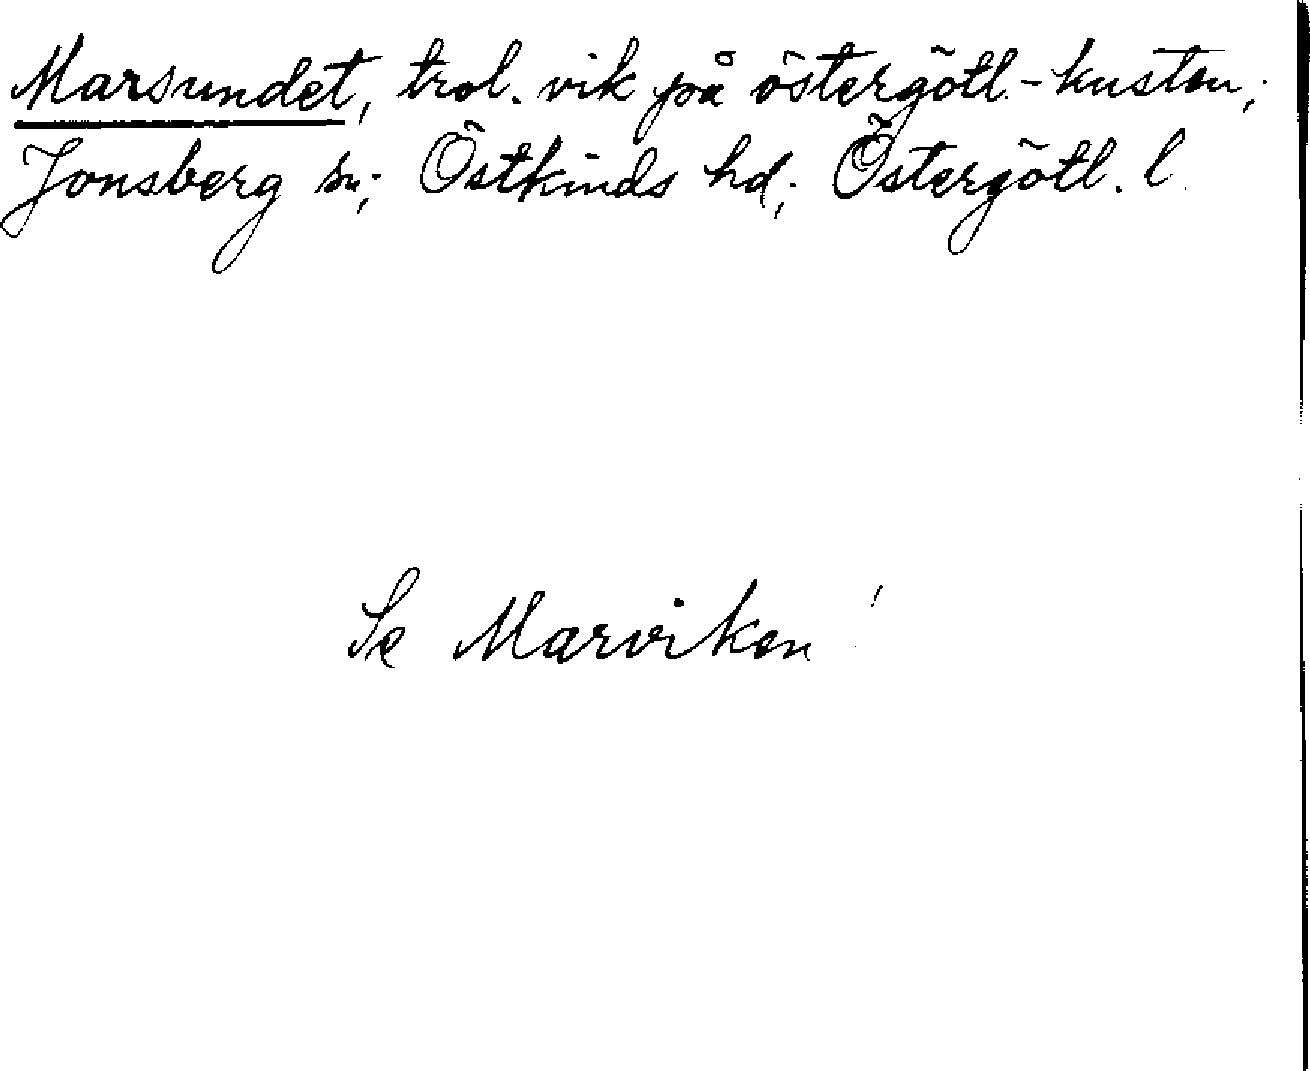 Marsundet, trol. vik på östergötl.-kusten;
Jonsberg sn; Östkinds hd; Östergötl. l.
Se Marviken!